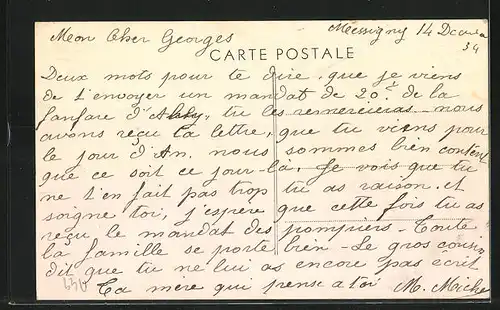 Messigny 14 34
Mon Cher Georges
CARTE POSTALE
Deux mots pour te dire, que je viens
de t'envoyer un mandat de 20f. de la
fanfare d' tu les remercieras nous
avons reçu ta lettre, que tu viens pour
le jour d'An. nous sommes bien content
que ce soit ce jour-là. Je vois que tu
ne t'en fait pas trop tu as raison, et
soigne toi, j'espère que cette fois tu as
reçu le mandat des pompiers - Toute
la famille se porte bien - Le gros cousin
dit que tu ne lui as encore pas ecrit
Ta mère qui pense a toi M.